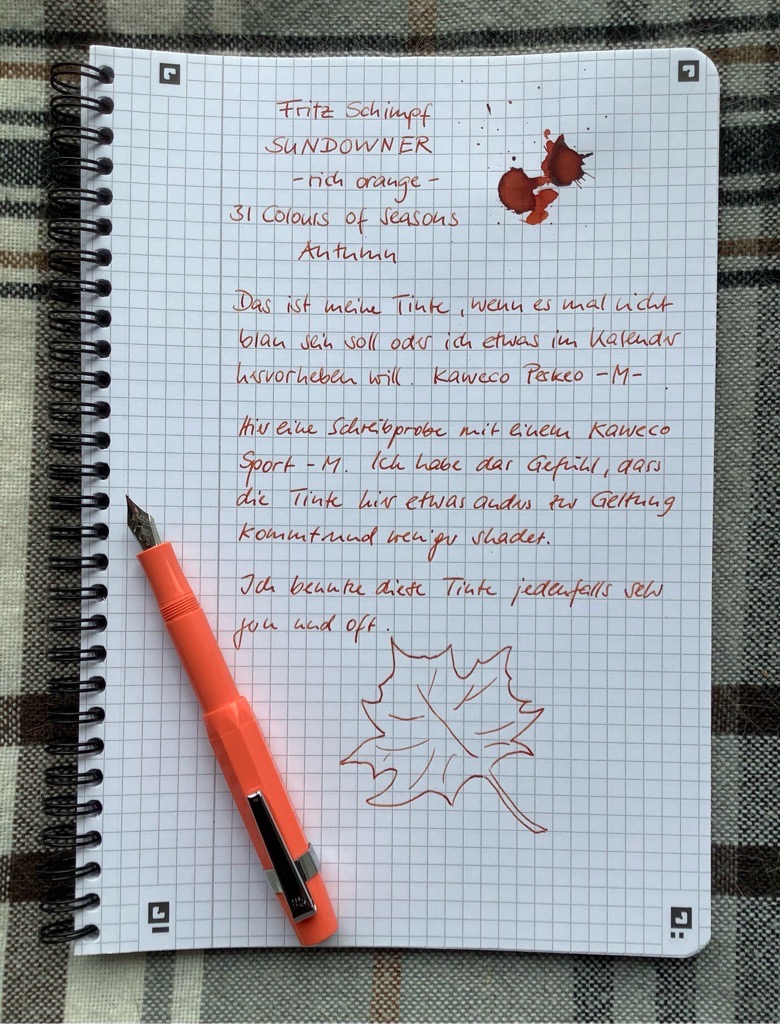 Fritz Schimpf
SUNDOWNER
- rich orange -
31 Colours of seasons
Autumn
Das ist meine Tinte, wenn es mal nicht
blau sein soll oder ich etwas im Kalender
hervorheben will. Kaweco Perkeo -M-
Hier eine Schreibprobe mit einem Kaweco
Sport - M. Ich habe das Gefühl, dass
die Tinte hier etwas anders zur Geltung
kommt und weniger shadet.
Ich benutze diese Tinte jedenfalls sehr
gern und oft.